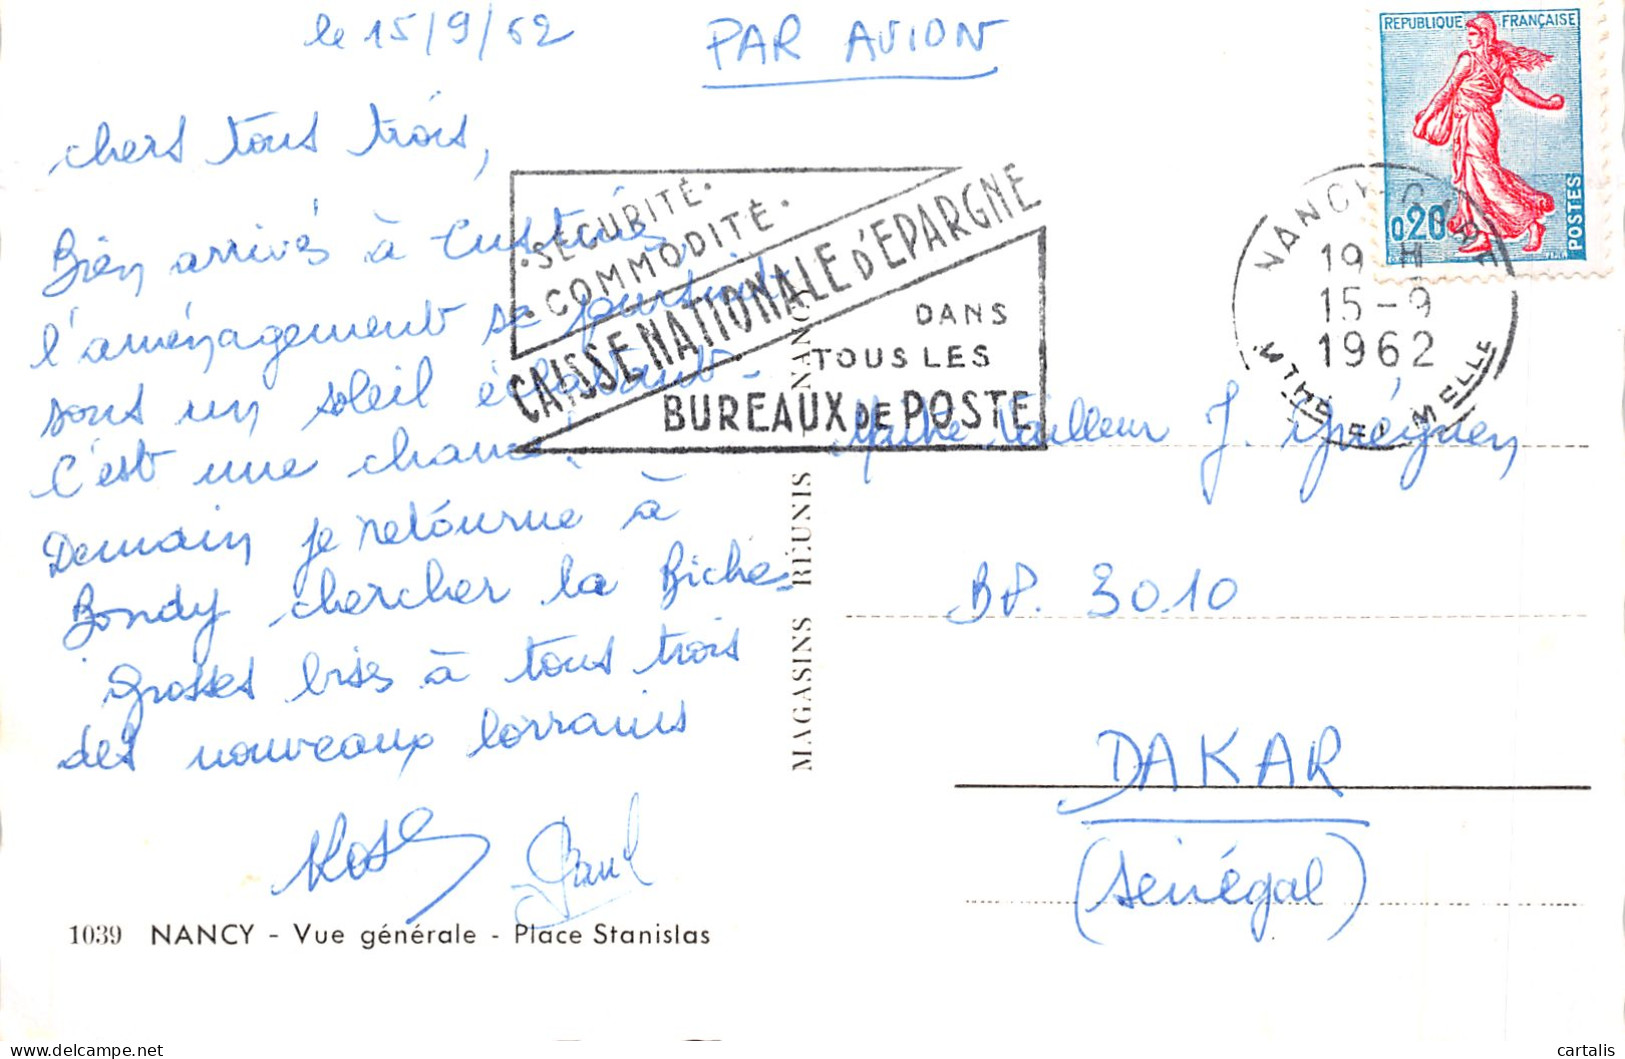 le 15/9/62
PAR AVION
REPUBLIQUE FRANÇAISE
0,20
POSTES
chers tous trois,
Bien arrivés à Custines
l'aménagement se poursuit
sous un soleil éclatant -
C'est une chance!
Demain je retourne à
Bondy chercher la Biche -
Grosses bises à tous trois
des nouveaux lorrains
Paul
·SÉCURITÉ·
·COMMODITÉ·
CAISSE NATIONALE D'EPARGNE
DANS
TOUS LES
BUREAUX DE POSTE
NANCY GARE
19 H
15-9
1962
MTHE ET MELLE
MAGASINS RÉUNIS NANCY
J.
BP. 3010
DAKAR
(Sénégal)
1039 NANCY - Vue générale - Place Stanislas
cartalis